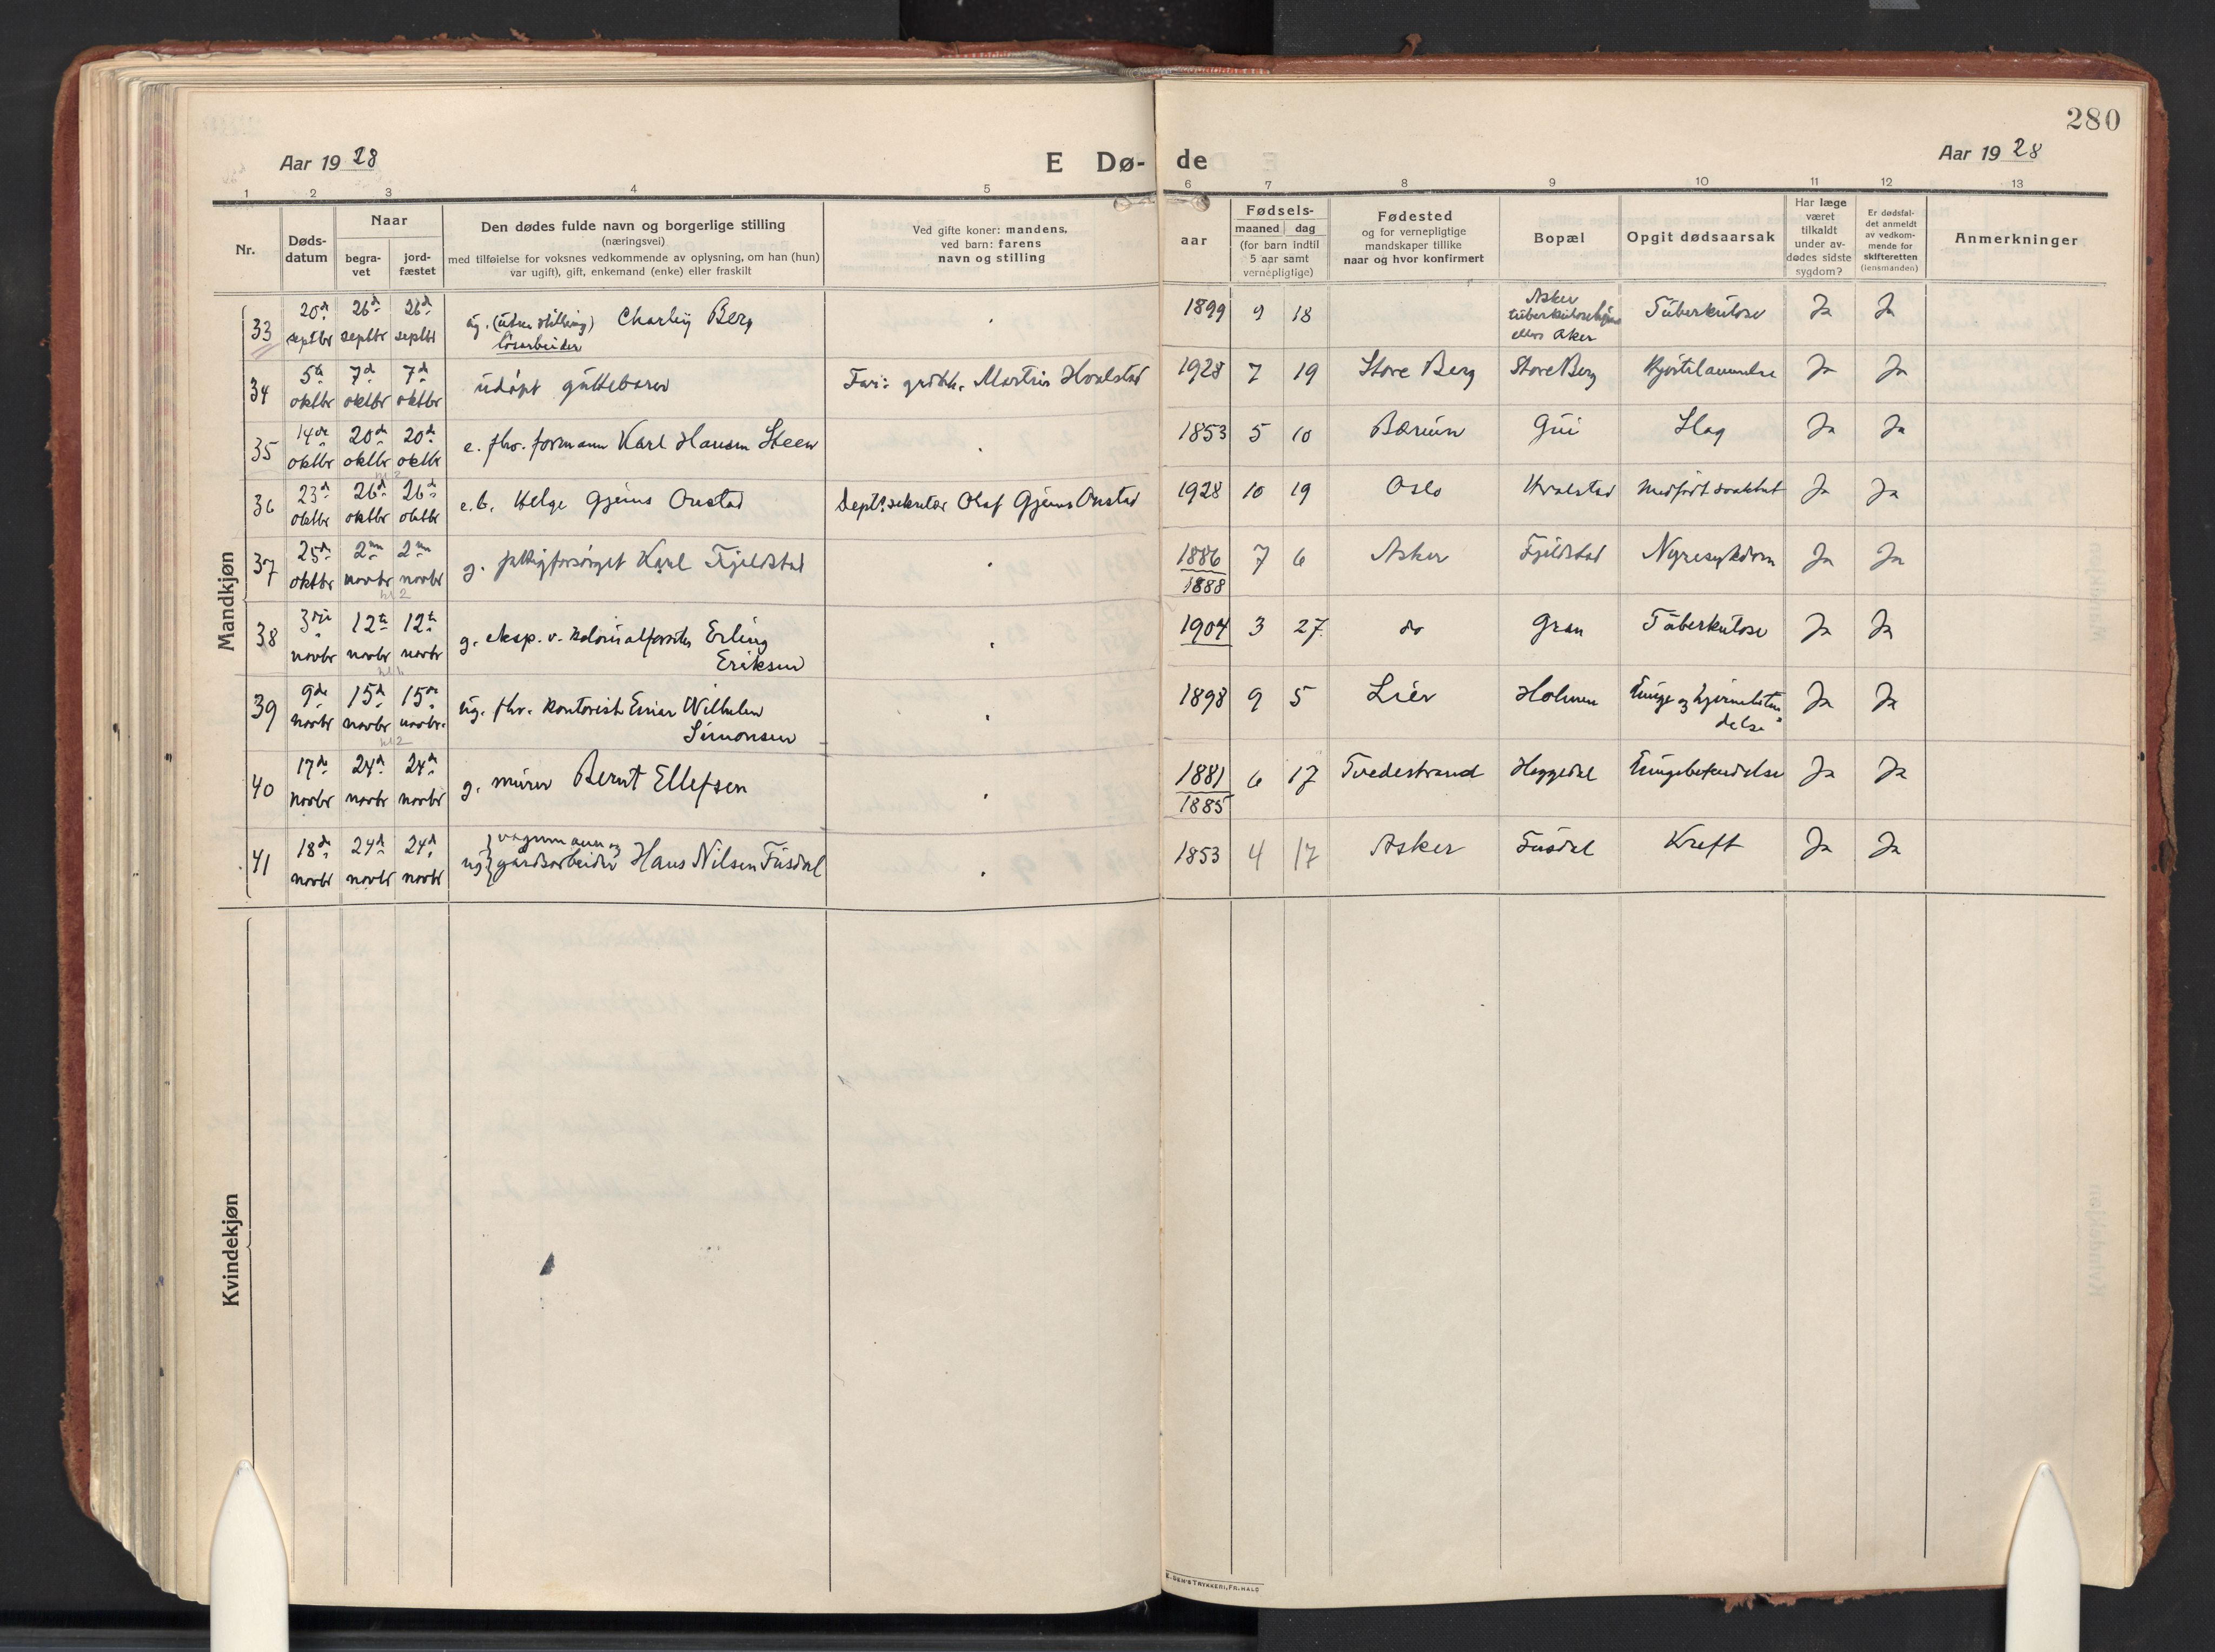 280
Aar 1928
E Dø-
de
Aar 1928
1 2 3 4 5 6 7 8 9 10 11 12 13
Nr.
Døds-
datum
Naar
begra-
vet
jord-
fæstet
Den dødes fulde navn og borgerlige stilling
(næringsvei)
med tilføielse for voksnes vedkommende av oplysning, om han (hun)
var ugift), gift, enkemand (enke) eller fraskilt
Ved gifte koner: mandens,
ved barn: farens
navn og stilling
aar
Fødsels-
maaned dag
(for barn indtil
5 aar samt
vernepligtige)
Fødested
og for vernepligtige
mandskaper tillike
naar og hvor konfirmert
Bopæl
Opgit dødsaarsak
Har læge
været
tilkaldt
under av-
dødes sidste
sygdom?
Er dødsfal-
det anmeldt
av vedkom-
mende for
skifteretten
(lensmanden)
Anmerkninger
Mandkjøn
33 20de septbr 26de septbr 26de septbr ug. (uten stilling) Charley Berg 1899 9 18 Tuberkulose Ja Ja
løsarbeider
Asker
eller Aker
34 5te oktbr 7de oktbr 7de oktbr udøpt guttebarn Far: Martin Hvalstad 1928 7 19 Store Berg Store Berg Ja Ja
35 14de oktbr 20de oktbr 20de oktbr e. fhv. formann Karl Hansen Steen 1853 5 10 Bærum Gui Slag Ja Ja
36 23de oktbr 26de oktbr 26de oktbr e.b. Helge Gjems Onstad Dept.sekretær Olaf Gjems Onstad 1928 10 19 Oslo Hvalstad Medfødt svakhet Ja Ja
37 25de oktbr 2nn novbr 2nn novbr g. fattigforsørget Karl Fjeldstad 1886 7 6 Asker Fjeldstad Nyresykdom Ja Ja
1888
kl 2
38 3die novbr 12te novbr 12te novbr g. eksp. v. Erling 1904 3 27. do Gran Tuberkulose Ja Ja
Eriksen
39 9de novbr 15de novbr 15de novbr. ug. fhv. kontorist Einar Wilhelm 1898 9 5 Lier Holmen Lunge og hjernebeten Ja Ja
Simonsen
delse
kl 2
40 17de novbr 24de novbr 24de novbr g. murer Bernt Ellefsen 1881 6 17 Tvedestrand Heggedal Lungebetendelse Ja Ja
1885
41 18de novbr 24de novbr 24de novbr ug. { vognmann og
gårdsarbeider Hans Nilsen Fusdal 1853 4 17 Asker Fusdal Kreft Ja Ja
Kvindekjøn